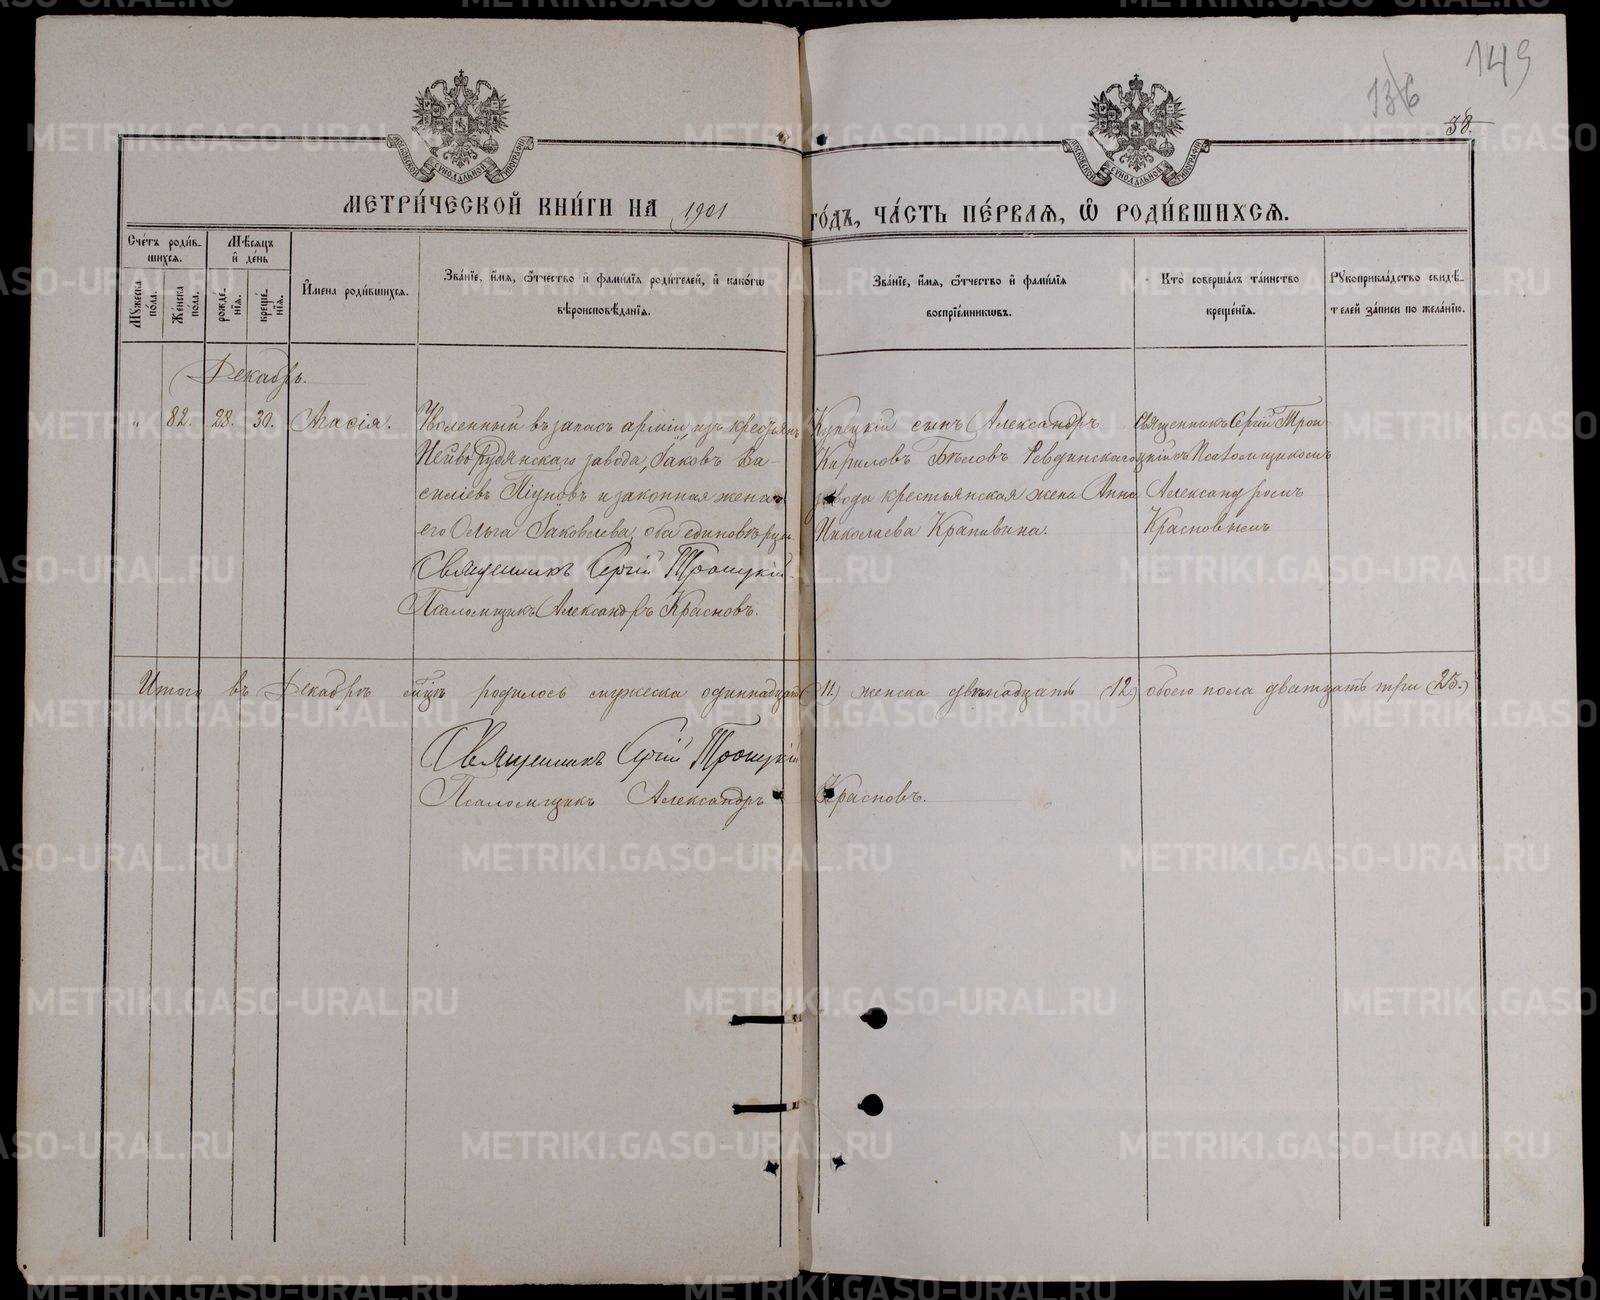 149
136
38.
МОСКОВСКОЙ СѴНОДАЛЬНОЙ ТИПОГРАФІИ
МОСКОВСКОЙ СѴНОДАЛЬНОЙ ТИПОГРАФІИ
МЕТРИ́ЧЕСКОЙ КНИ́ГИ НА 1901 ГО́ДЪ, ЧА́СТЬ ПЕ́РВАѦ, Ѡ҆ РОДИ́ВШИХСѦ.
Сче́тъ роди́в-
шихсѧ.
Мꙋ́жеска по́ла.
Же́нска по́ла.
Мѣ́сѧцъ
и҆ де́нь
рожде́-
нїѧ.
креще́-
нїѧ.
И҆́мена роди́вшихсѧ.
Зва́нїе, и҆́мѧ, ѻ҆́тчество и҆ фами́лїѧ роди́телей, и҆ како́гѡ
вѣроисповѣ́данїѧ.
Зва́нїе, и҆́мѧ, ѻ҆́тчество и҆ фами́лїѧ
воспрїе́мникѡвъ.
Кто̀ соверша́лъ та́инство
креще́нїѧ.
Рꙋкоприкла́дство свидѣ́-
телей за́писи по жела́нїю.
Декабрь.
" 82. 28. 30. Агасія.
Уволенный въ запасъ арміи изъ крестьянъ
Нейво Рудянскаго завода, Іаковъ Ва-
силіевъ Піуновъ и законная жена
его Ольга Іаковлева, оба единовѣрцы.
Священникъ Сергій Троицкій.
Псаломщикъ Александръ Красновъ.
Купецкій сынъ Александръ
Кириловъ Бѣловъ Ревдинскаго
завода крестьянская жена Анна
Николаева Крапивина.
Священникъ Сергій Трои-
цкій съ Псаломщикомъ
Александромъ
Красновымъ
Итого въ Декабрѣ м-цѣ родилось мужеска одиннадцать (11.) женска двѣнадцать (12.) обоего пола двадцать три (23.)
Священникъ Сергій Троицкій
Псаломщикъ Александръ Красновъ.
METRIKI.GASO-URAL.RU